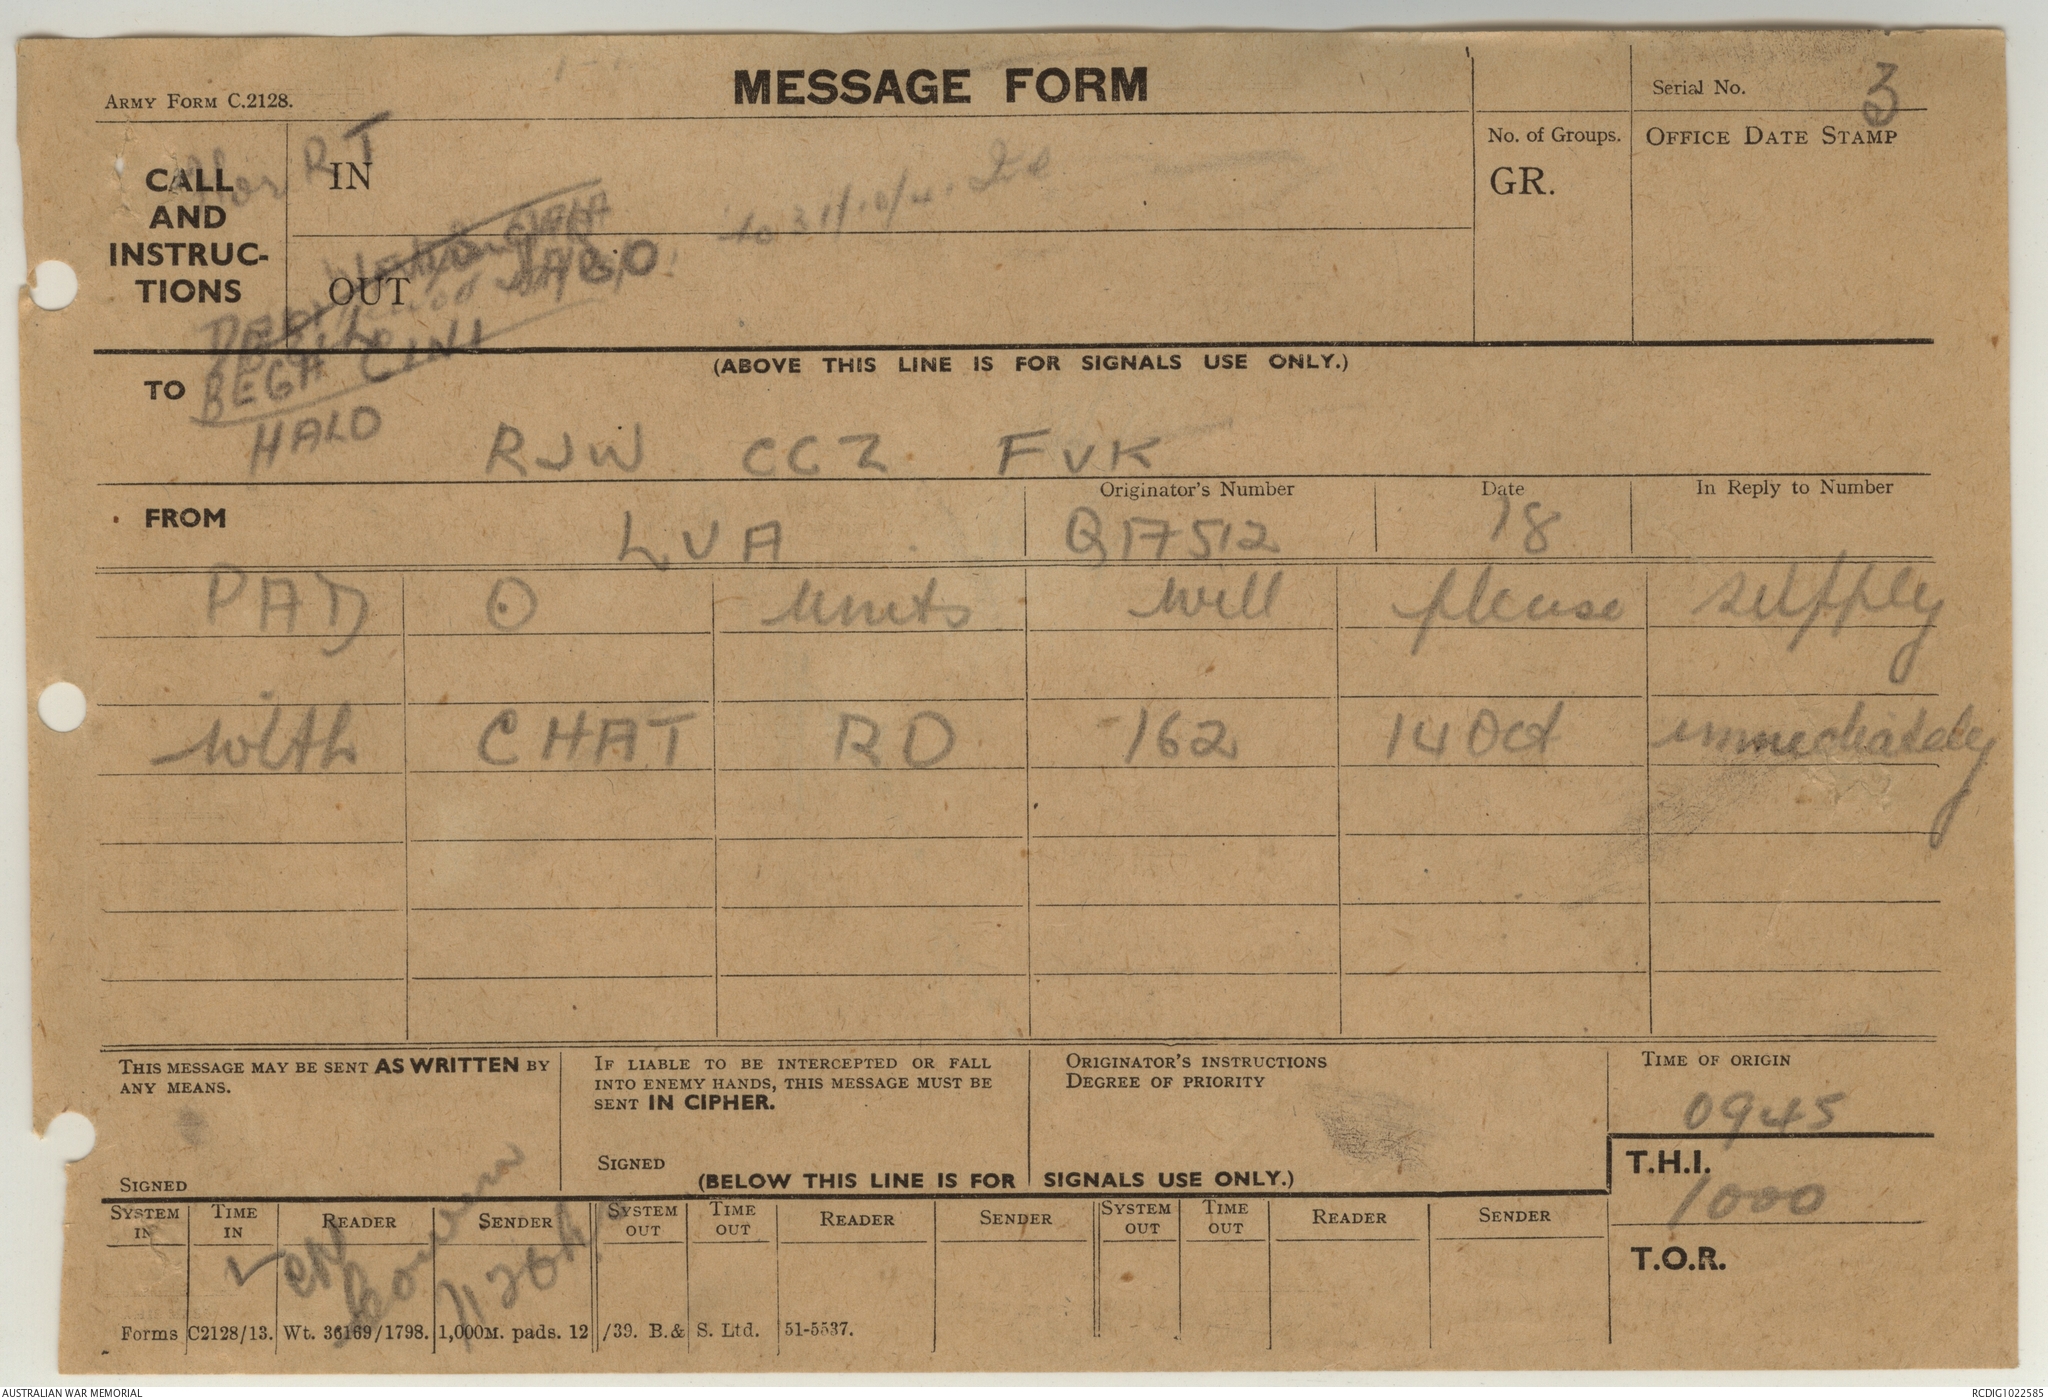 MESSAGE FORM
ARMY FORM C.2128.
Serial No. 3
CALL AND INSTRUC-TIONS
IN
RT
to 31/10/4
No. of Groups.
GR.
OFFICE DATE STAMP
OUT
(ABOVE THIS LINE IS FOR SIGNALS USE ONLY.)
TO
HALO
RJW CCZ FVK
FROM
LVA
Originator's Number
Q17512
Date
18
In Reply to Number
PAD O units will please supply
with CHAT RD 162 14 Oct immediately
THIS MESSAGE MAY BE SENT AS WRITTEN BY
ANY MEANS.
SIGNED
IF LIABLE TO BE INTERCEPTED OR FALL
INTO ENEMY HANDS, THIS MESSAGE MUST BE
SENT IN CIPHER.
SIGNED
ORIGINATOR'S INSTRUCTIONS
DEGREE OF PRIORITY
TIME OF ORIGIN
0945
(BELOW THIS LINE IS FOR SIGNALS USE ONLY.)
T.H.I.
1000
T.O.R.
SYSTEM IN TIME IN READER SENDER SYSTEM OUT TIME OUT READER SENDER SYSTEM OUT TIME OUT READER SENDER
Forms C2128/13. Wt. 36169/1798. 1,000M. pads. 12/39. B.& S. Ltd. 51-5537.
AUSTRALIAN WAR MEMORIAL
RCDIG1022585